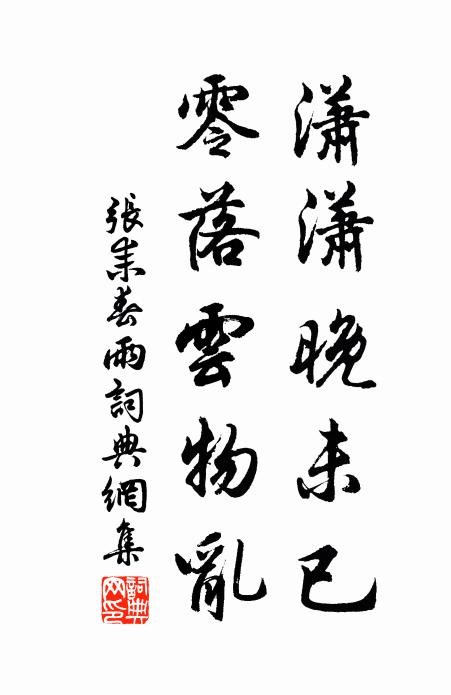 瀟瀟晚未已
零落雲物亂
張耒春雨詞典網集
詞典網印